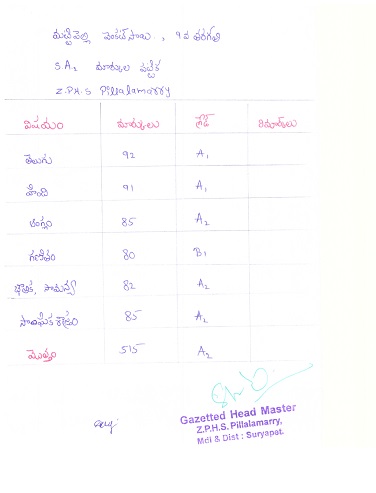 మట్టిపెల్లి వెంకటసాయి, 9వ తరగతి
S.A2 మార్కుల పట్టిక
Z.P.H.S Pillalamarry
విషయం మార్కులు గ్రేడ్ రిమార్కులు
తెలుగు 92 A1
హింది 91 A1
ఆంగ్లం 85 A2
గణితం 80 B1
భౌతిక, సామాన్య 82 A2
సాంఘిక శాస్త్రం 85 A2
మొత్తం 515 A2
Gazetted Head Master
Z.P.H.S. Pillalamarry,
Mdl & Dist : Suryapet.